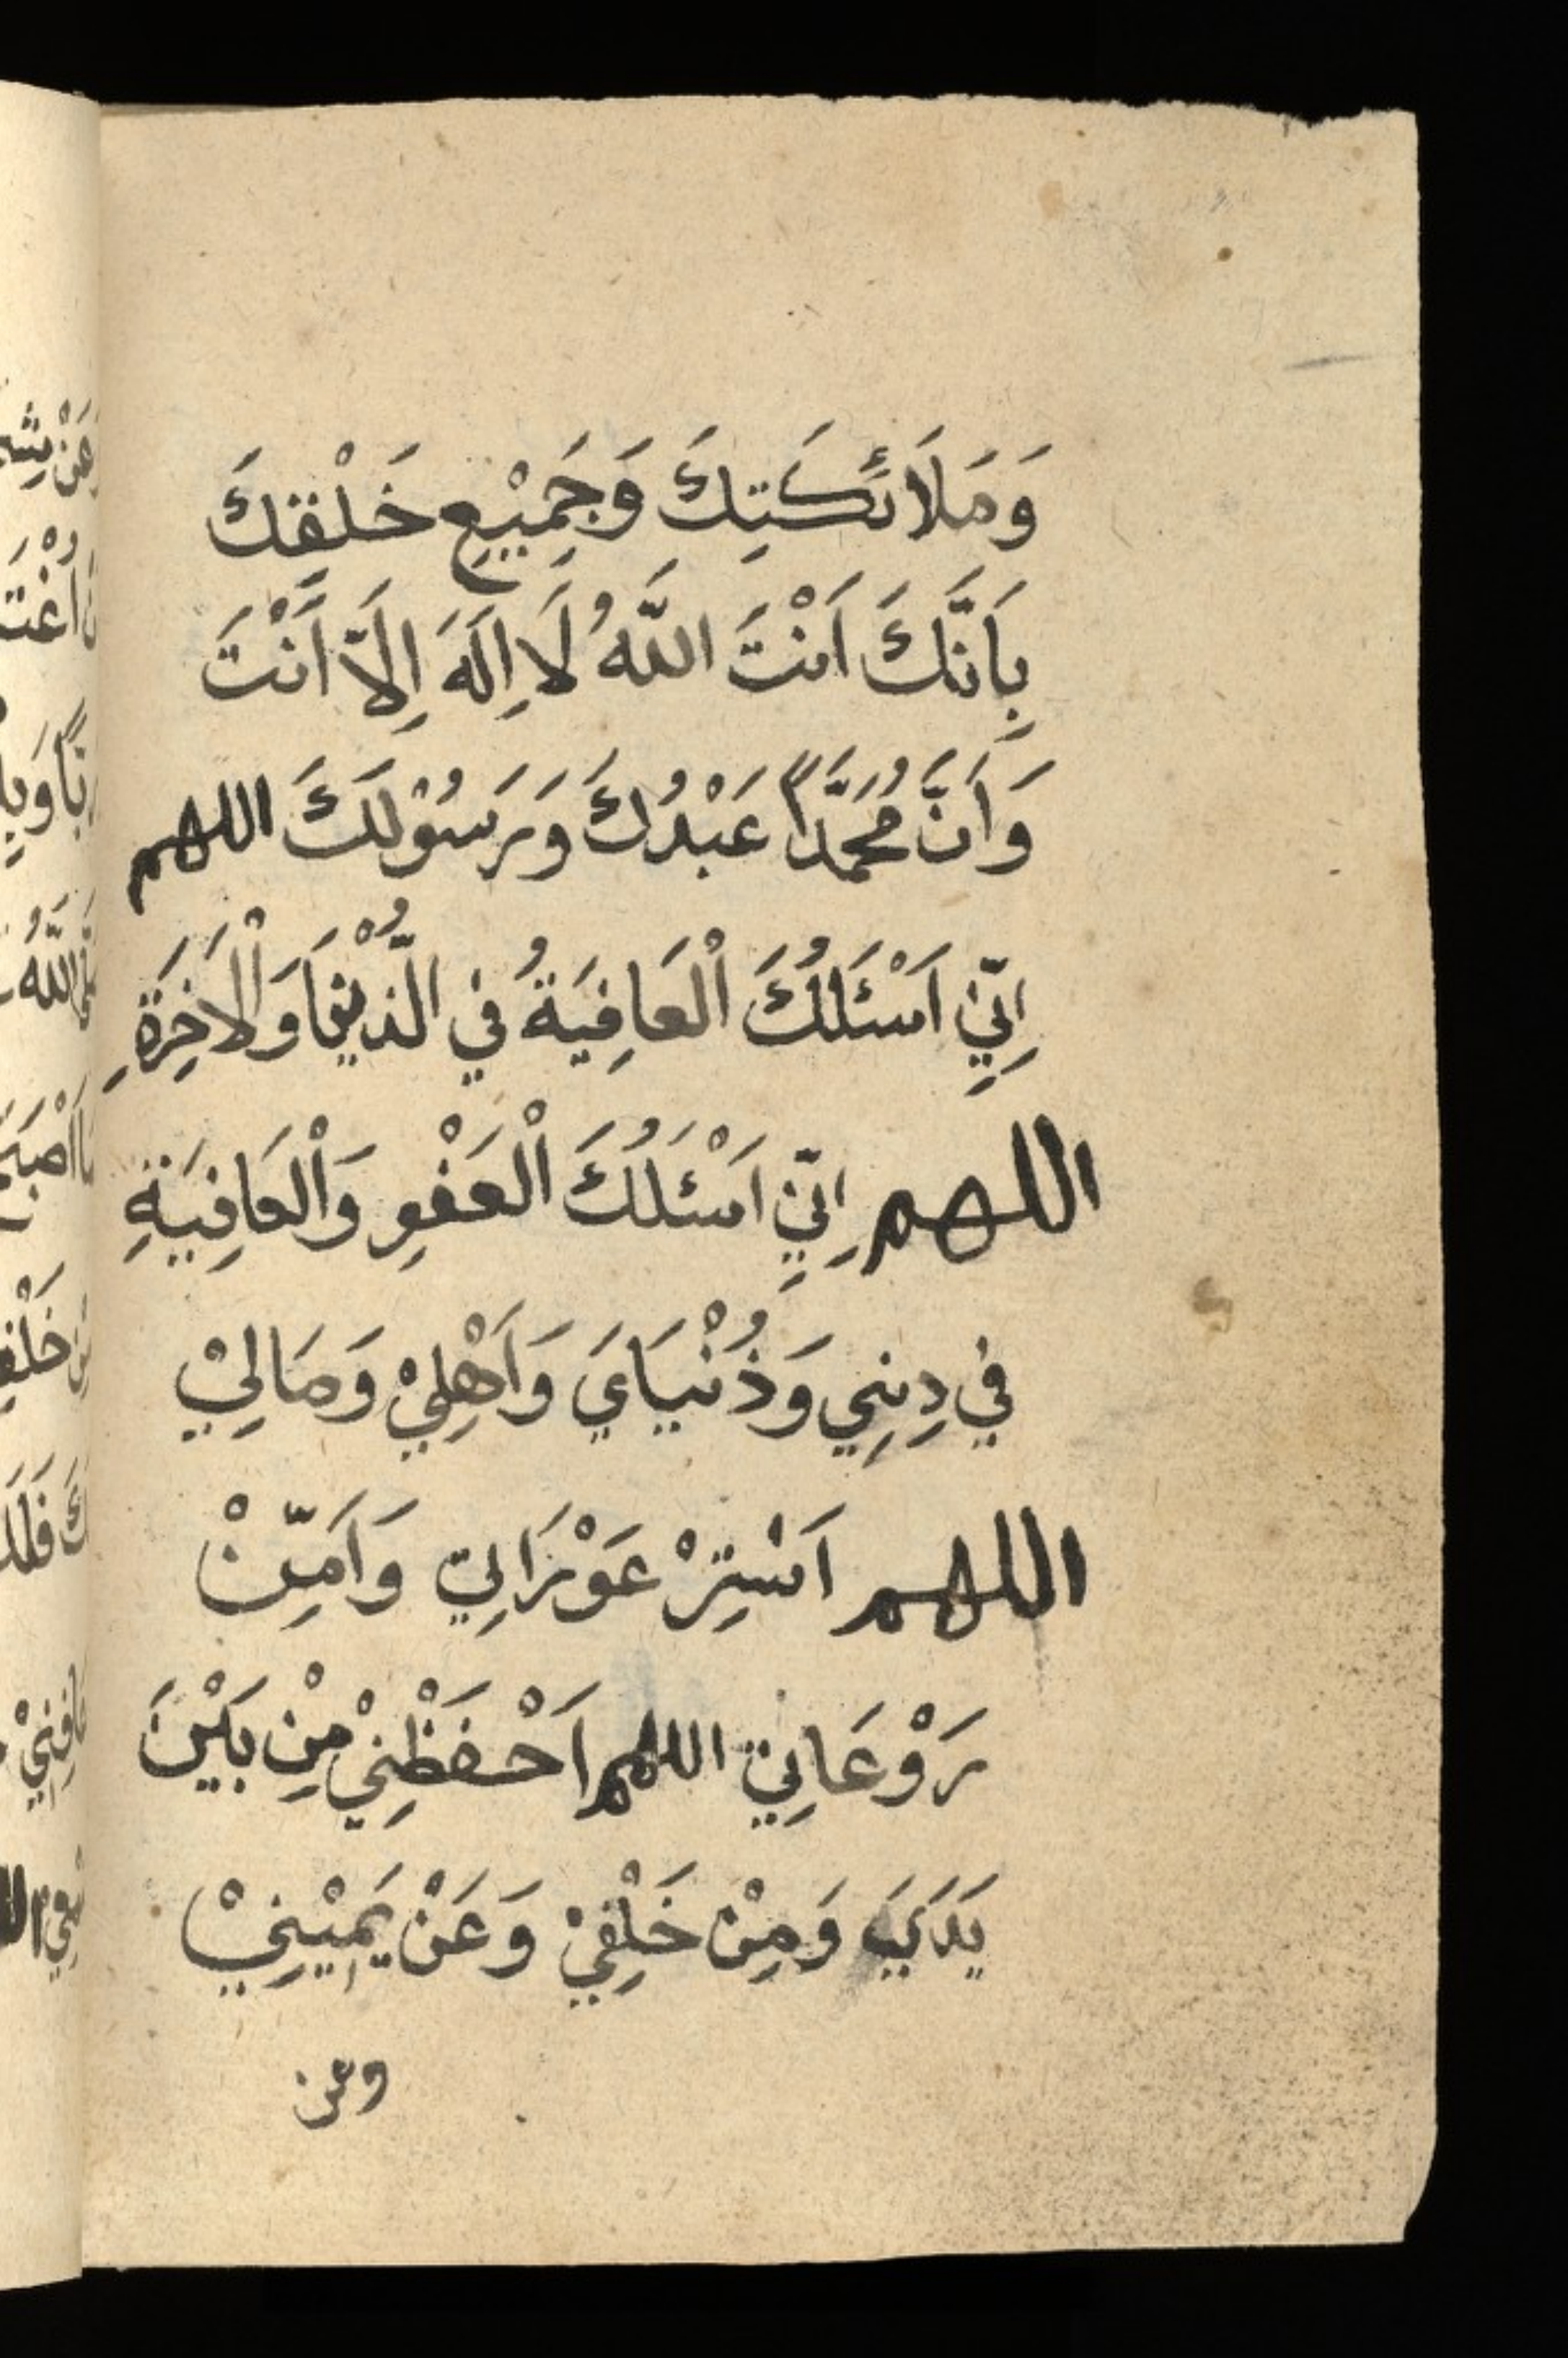 وَمَلَائَكَتِكَ وَجَمِيْعِ خَلْقِكَ
بِاَنَّكَ اَنْتَ اللَّهُ لَا اِلَهَ اِلَّا اَنْتَ
وَاَنَّ مُحَمَّدًا عَبْدُكَ وَرَسُوْلَكَ اللهم
اِنِّي اَسْئَلُكَ الْعَافِيَةُ في الذُّنْيَا وَالْاَخِرَةِ
اللهم اِنِّي اَسْئَلُكَ الْعَفْوِ وَالْعَافِيَةِ
في دِينِي وَذُنْيَايَ وَاَهْلِيْ وَمَالِيْ
اللهم اَسْتِرْ عَوْرَاتِي وَاَمِّنْ
رَوْعَاتِي اللهم اَحْفَظْنِيْ مِنْ بَيْنَ
يَدَيَّ وَمِنْ خَلْفِيْ وَعَنْ يَمِيْنِيْ
وعن